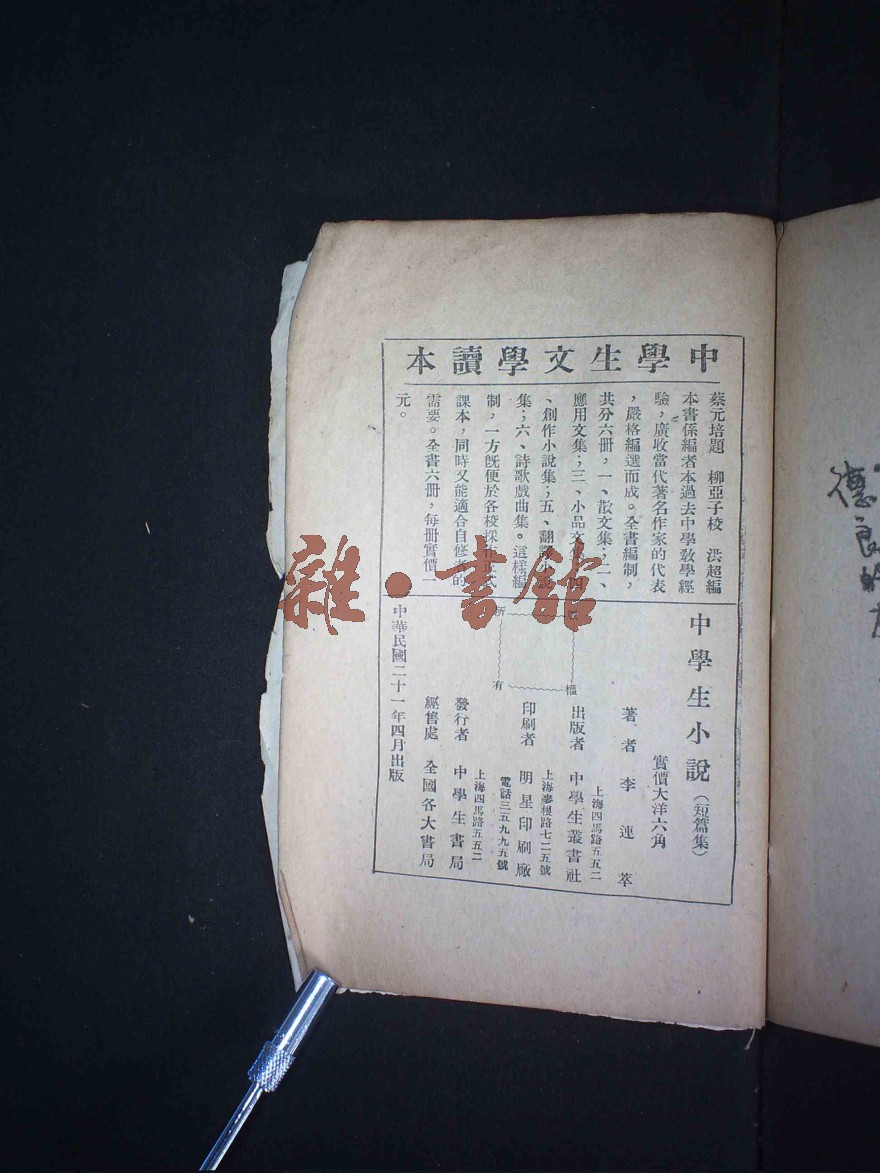 中學生文學讀本
蔡元培題　柳亞子校　洪超編
本書係編者本過去中學教學經
驗，廣收當代著名作家的代表
，嚴格編選而成。全書編制，
共分六册，一、散文集；二、
應用文集；三、小品文集；四
、創作小說集；五、翻譯小說
集；六、詩歌戲曲集。這樣編
制，一方旣便於各校採作正式
課本，同時又能適合自修者的
需要。全書六册，每册實價一
元。
中學生小說（短篇集）
實價大洋六角
著者　李連萃
上海四馬路五五二
出版者　中學生叢書社
上海麥根路七二五號
印刷者　明星印刷廠
電話三五九九五號
上海四馬路五五二
發行者　中學生書局
經售處　全國各大書局
中華民國二十一年四月出版
權
所
有
雜·書館
德良的